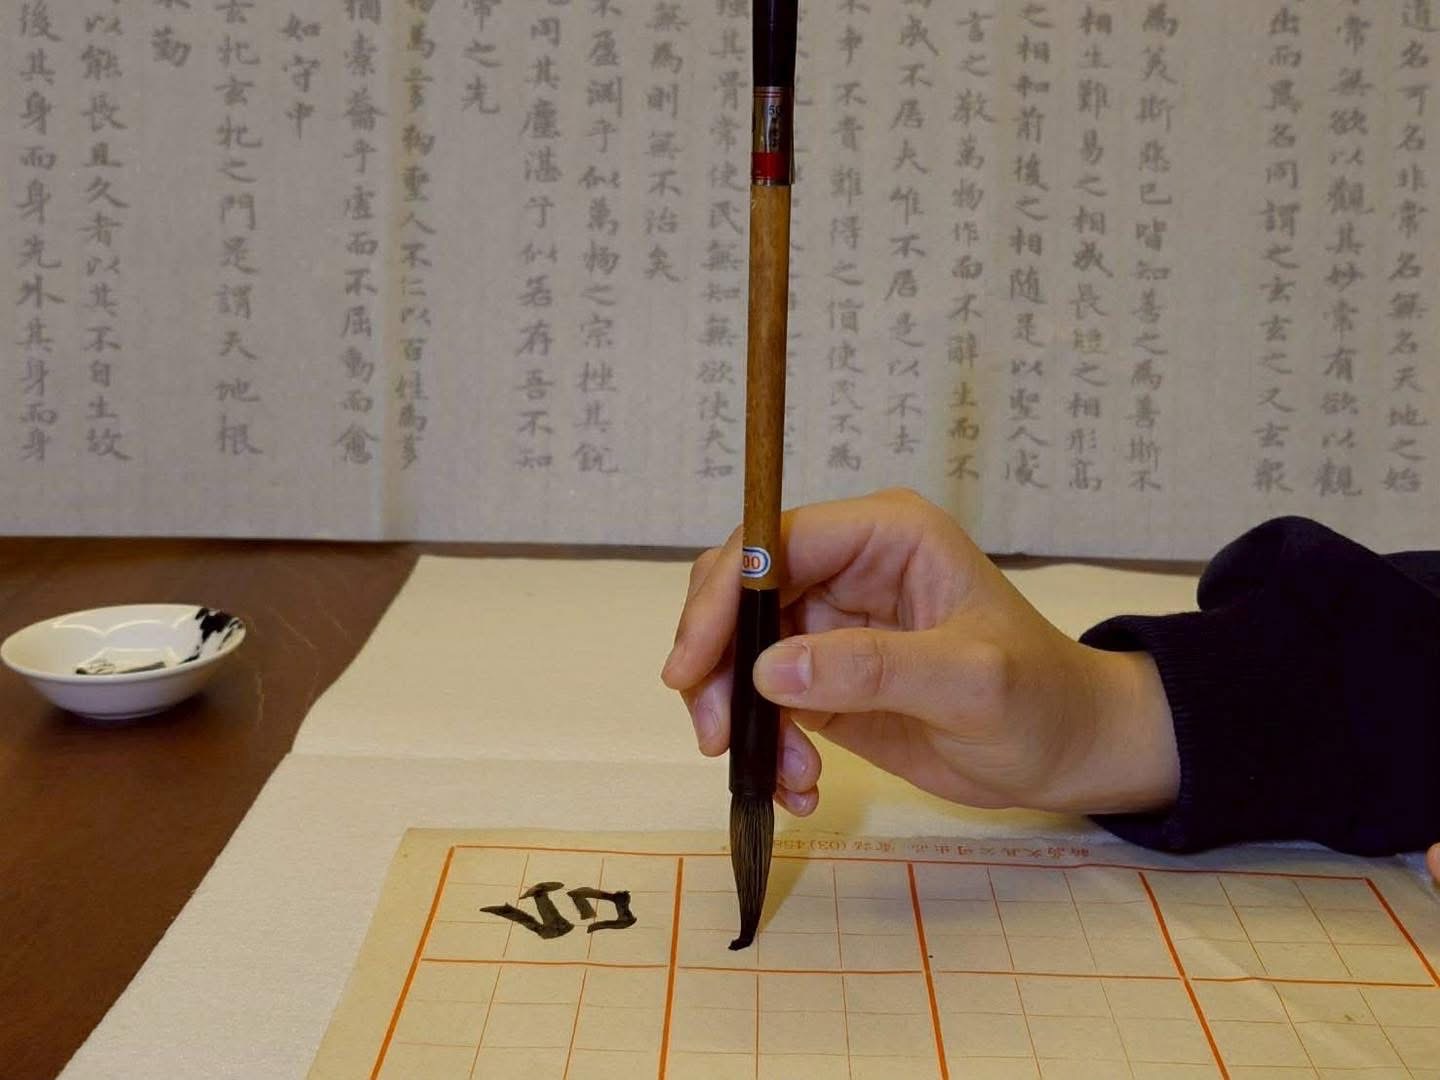 道名可名非常名無名天地之始
常無欲以觀其妙常有欲以觀
出而異名同謂之玄玄之又玄眾
為美斯惡已皆知善之為善斯不
相生難易之相成長短之相形高
之相和前後之相隨是以聖人處
言之教萬物作而不辭生而不
成不居夫唯不居是以不去
不爭不貴難得之貨使民不為
強其骨常使民無知無欲使夫知
無為則無不治矣
不盈淵乎似萬物之宗挫其銳
同其塵湛兮似若存吾不知
帝之先
物為芻狗聖人不仁以百姓為芻
猶橐籥乎虛而不屈動而愈
如守中
玄牝玄牝之門是謂天地根
勤
以能長且久者以其不自生故
後其身而身先外其身而身
00
文具公司出品 電話(03)458